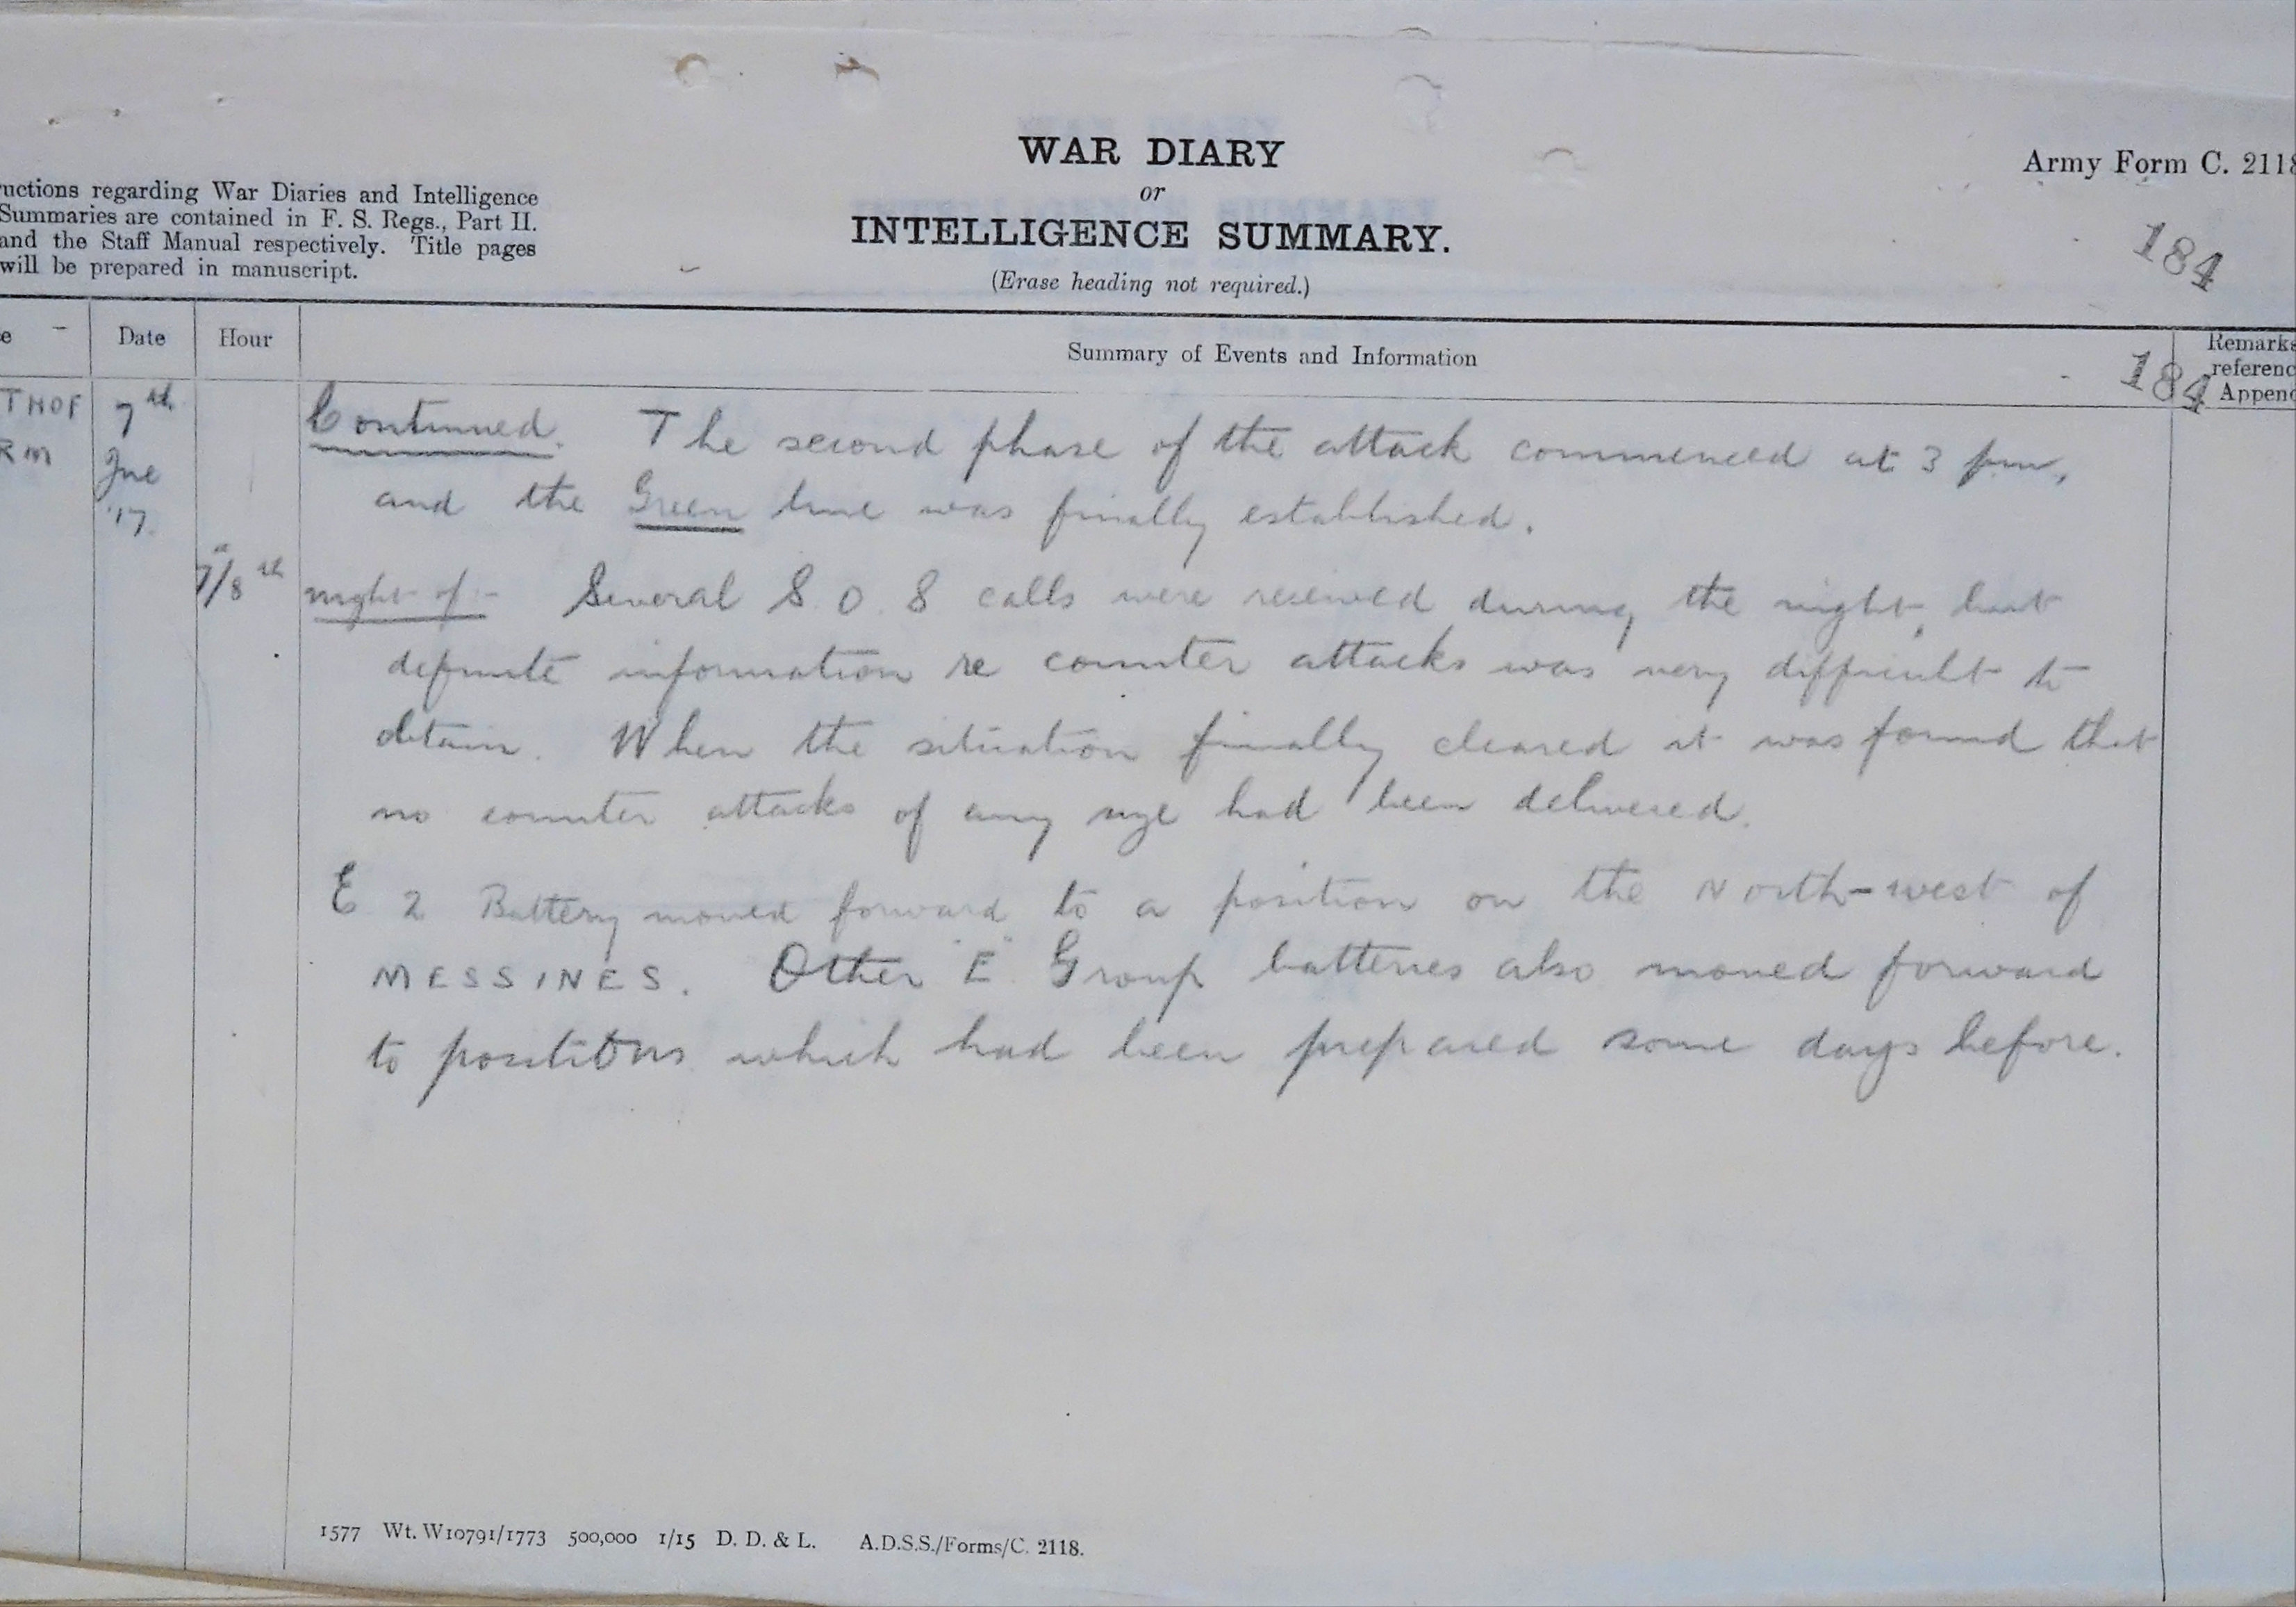 WAR DIARY
or
INTELLIGENCE SUMMARY.
(Erase heading not required.)
Army Form C. 2118
uctions regarding War Diaries and Intelligence
Summaries are contained in F. S. Regs., Part II.
and the Staff Manual respectively. Title pages
will be prepared in manuscript.
184
e Date Hour Summary of Events and Information Remarks
referenc
Append
184
THOF
RM
7th
Jne
'17.
Continued. The second phase of the attack commenced at 3 pm,
and the Green line was finally established.
7/8th night of :- Several S.O.S calls were received during the night, but
definite information re counter attacks was very difficult to
obtain. When the situation finally cleared it was found that
no counter attacks of any size had been delivered.
E 2 Battery moved forward to a position on the North-west of
MESSINES. Other "E" Group batteries also moved forward
to positions which had been prepared some days before.
1577 Wt. W10791/1773 500,000 1/15 D. D. & L. A.D.S.S./Forms/C. 2118.